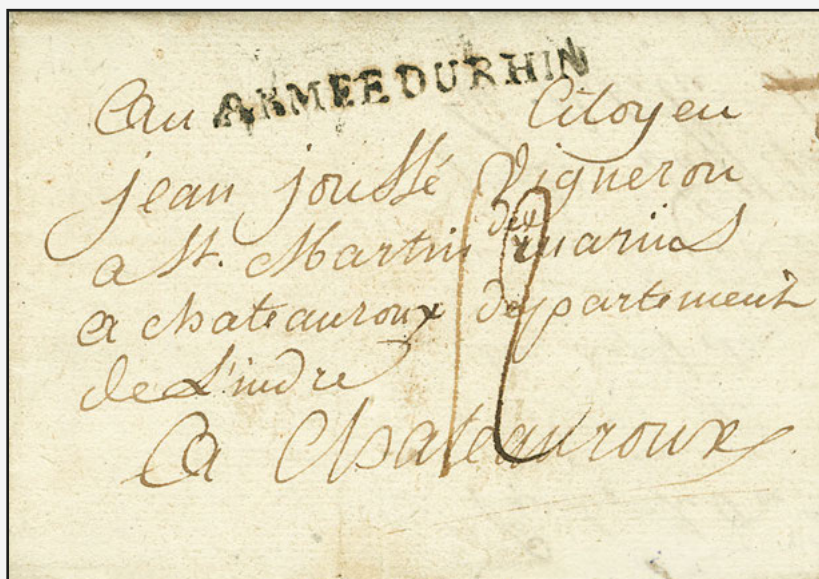 ARMEE DU RHIN
Au Citoyen
jean joussé Vigneron
a St. Martin
a chateauroux departement
de L'indre
A Chateauroux